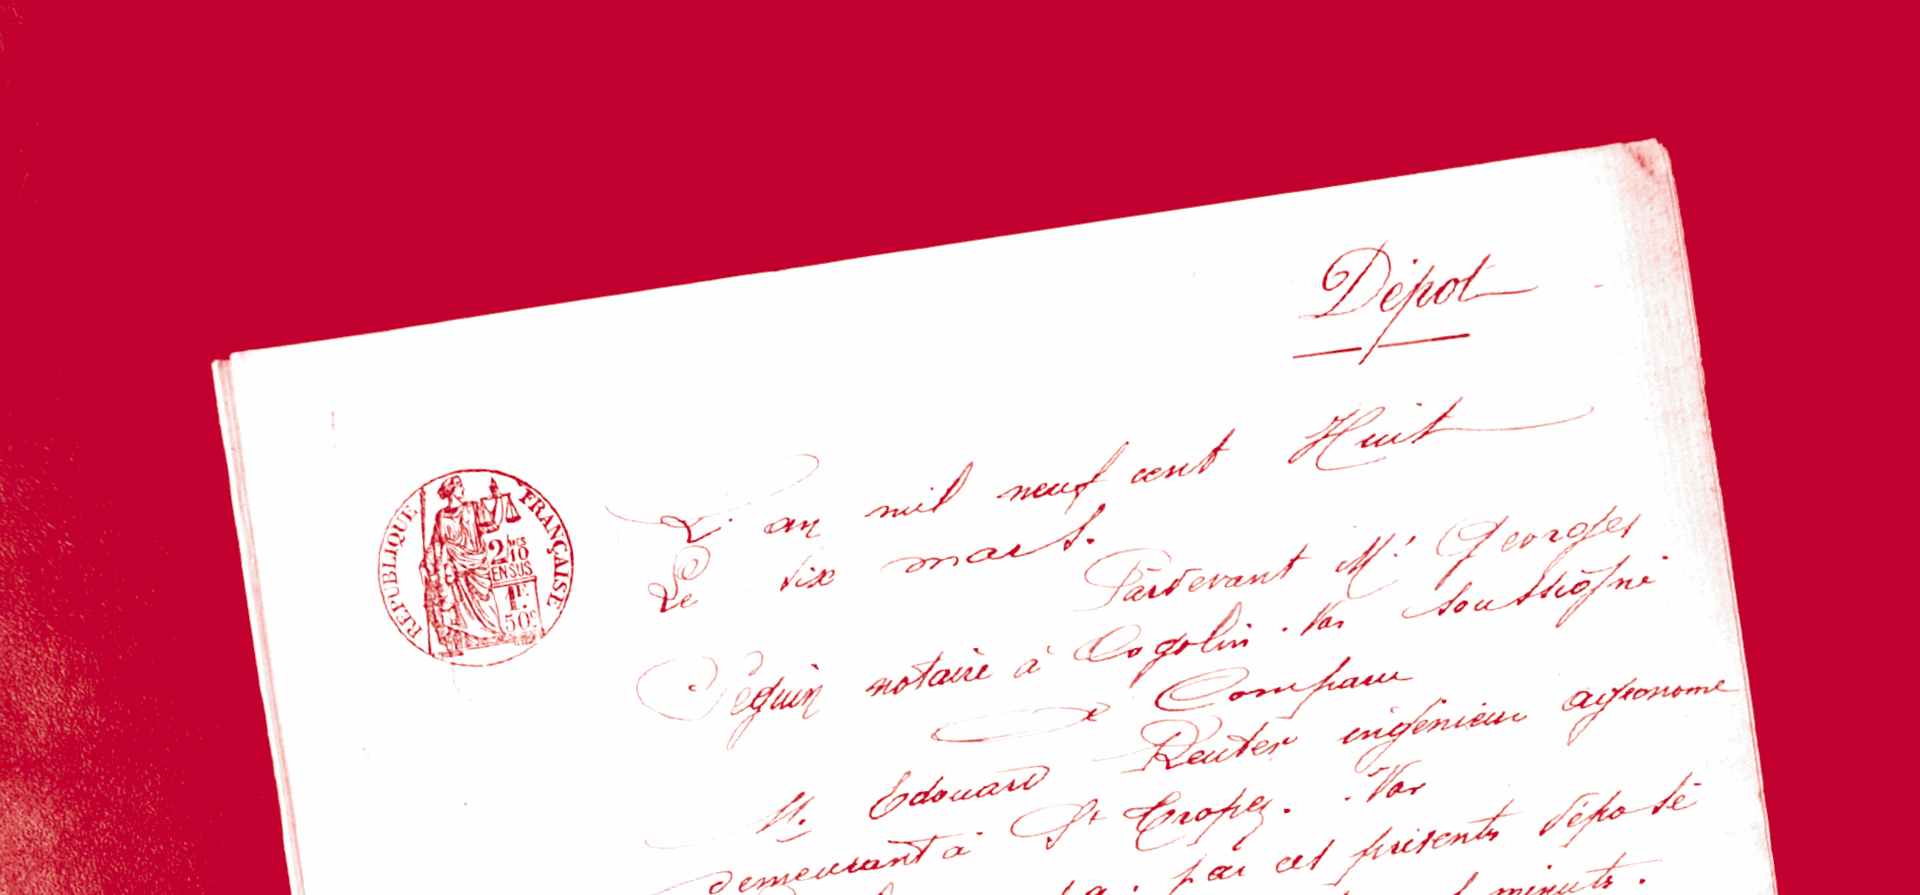 Dépot
RÉPUBLIQUE FRANÇAISE
2/10
EN SUS
1F.
50c
L'an mil neuf cent Huit
Le six mars.
Pardevant Me Georges
Séguin notaire à Cogolin. Var soussigné
a Comparu
M. Edouard Reuter ingénieur agronome
demeurant à St Tropez. Var
a. par ces présents déposé
minuts.